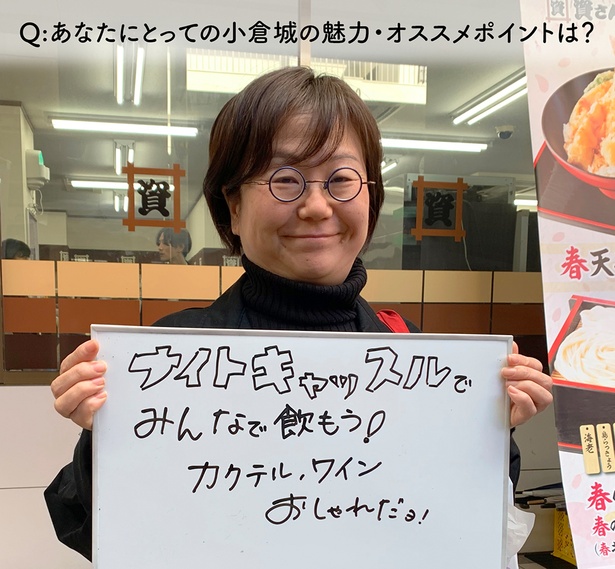 Q:あなたにとっての小倉城の魅力・オススメポイントは?
資さん
資
資
ナイトキャッスルで
みんなで飲もう!
カクテル、ワイン
おしゃれだョ!
春天
海老
春の
春の